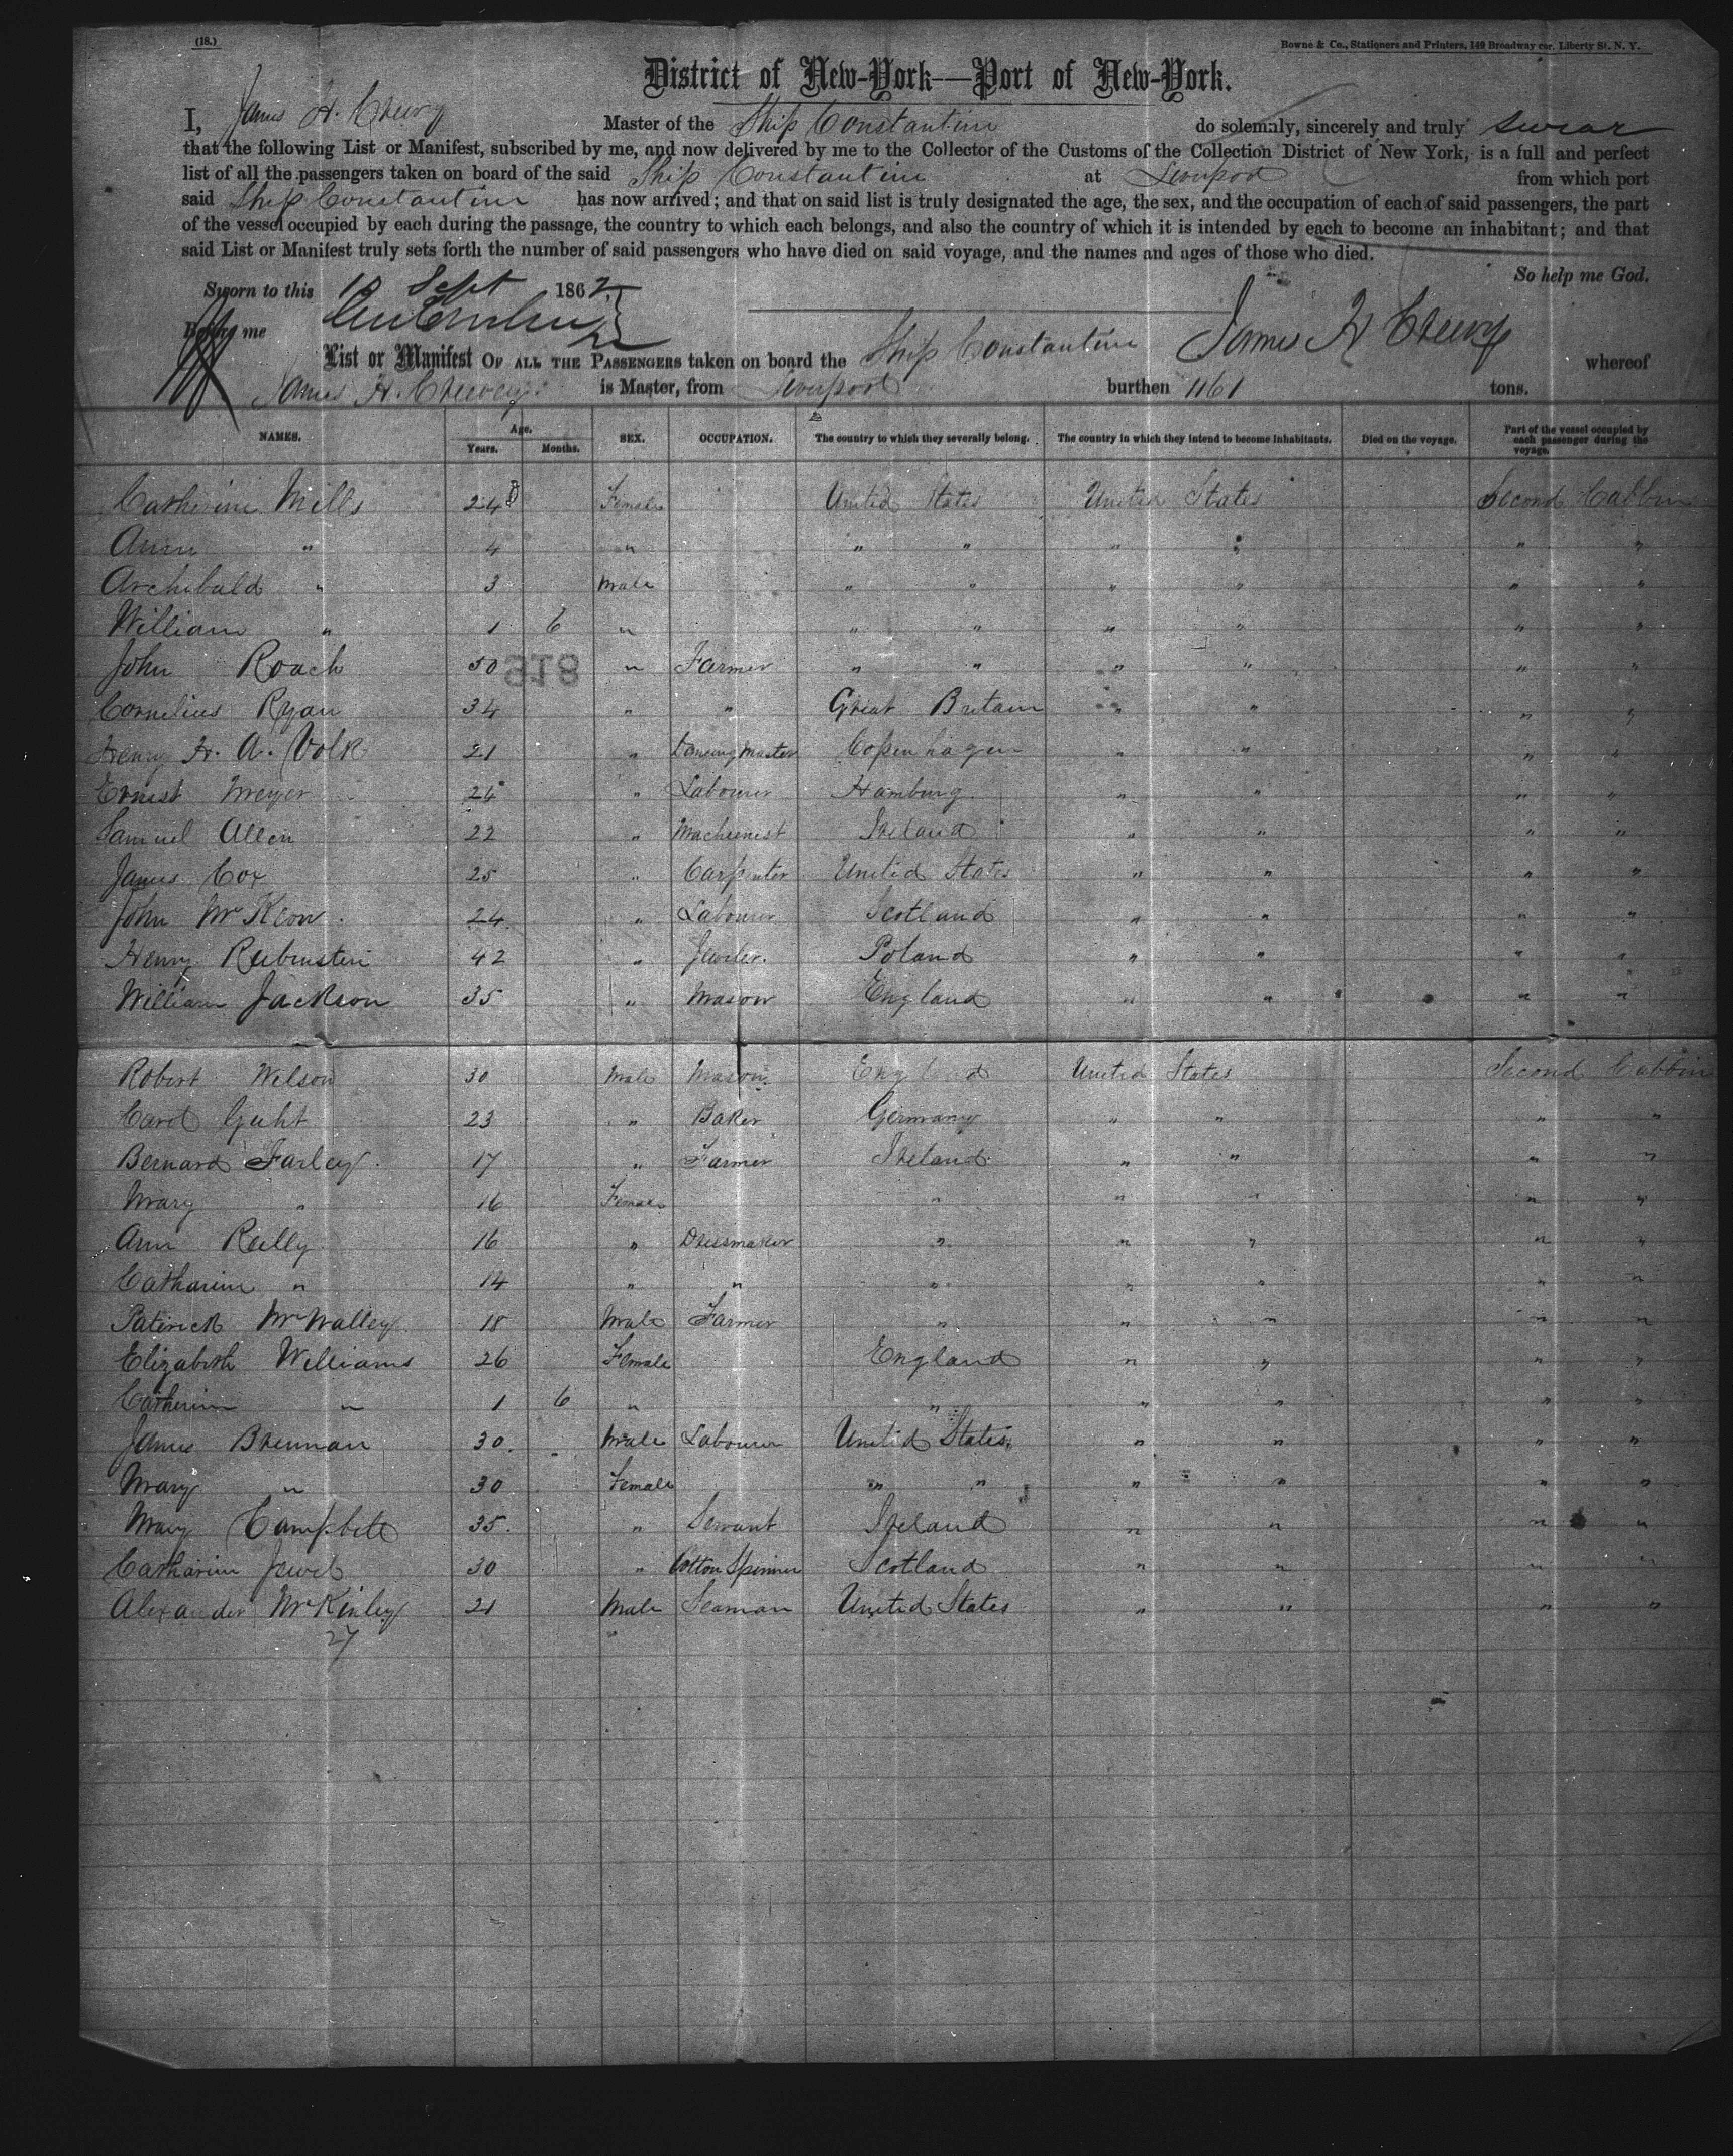 (18.)
Bowne & Co., Stationers and Printers, 149 Broadway cor. Liberty St. N. Y.
District of New-York—Port of New-York.
I, James H. Master of the Ship Constantine do solemnly, sincerely and truly swear
that the following List or Manifest, subscribed by me, and now delivered by me to the Collector of the Customs of the Collection District of New York, is a full and perfect
list of all the passengers taken on board of the said Ship Constantine at Liverpool from which port
said Ship Constantine has now arrived; and that on said list is truly designated the age, the sex, and the occupation of each of said passengers, the part
of the vessel occupied by each during the passage, the country to which each belongs, and also the country of which it is intended by each to become an inhabitant; and that
said List or Manifest truly sets forth the number of said passengers who have died on said voyage, and the names and ages of those who died.
So help me God.
Sworn to this 10 Sept 1862
Before me
James H
List or Manifest OF ALL THE PASSENGERS taken on board the Ship Constantine whereof
James H. is Master, from Liverpool burthen 1161 tons.
NAMES. Age. Years. Months. SEX. OCCUPATION. The country to which they severally belong. The country in which they intend to become inhabitants. Died on the voyage. Part of the vessel occupied by each passenger during the voyage.
Catherine Mills 24 Female United States United States Second Cabbin
Ann " 4 " " " " " " "
Archibald " 3 Male " " " " " "
William " 1 6 " " " " " " "
John Roach 50 " Farmer " " " " " "
918
Cornelius Ryan 34 " " Great Britain " " " "
Henry H. A. Volk 21 " Dancing Master Copenhagen " " " "
Ernest Meyer 26 " Labourer Hamburg " " " "
Samuel Allen 22 " Macheenist Ireland " " " "
James Cox 25 " Carpenter United States " " " "
John McKeon 24 " Labourer Scotland " " " "
Henry Rubinstein 42 " Jeweler. Poland " " " "
William Jackson 35 " Mason England " " " "
Robert Wilson 30 Male Mason England United States Second Cabbin
Carol Guht 23 " Baker Germany " " " "
Bernard Farley 17 " Farmer Ireland " " " "
Mary " 16 Female " " " " "
Ann Reilly 16 " Dressmaker " " " " "
Catharine " 14 " " " " " " "
Patrick McNalley 18 Male Farmer " " " " "
Elizabeth Williams 26 Female England " " " "
Catherine " 1 6 " " " " " "
James Brennan 30 Male Labourer United States " " " "
Mary " 30 Female " " " " " "
Mary Campbell 35 " Servant Ireland " " " "
Catharine Jewel 30 " Cotton Spinner Scotland " " " "
Alexander McKinley 21 Male Seaman United States " " " "
27